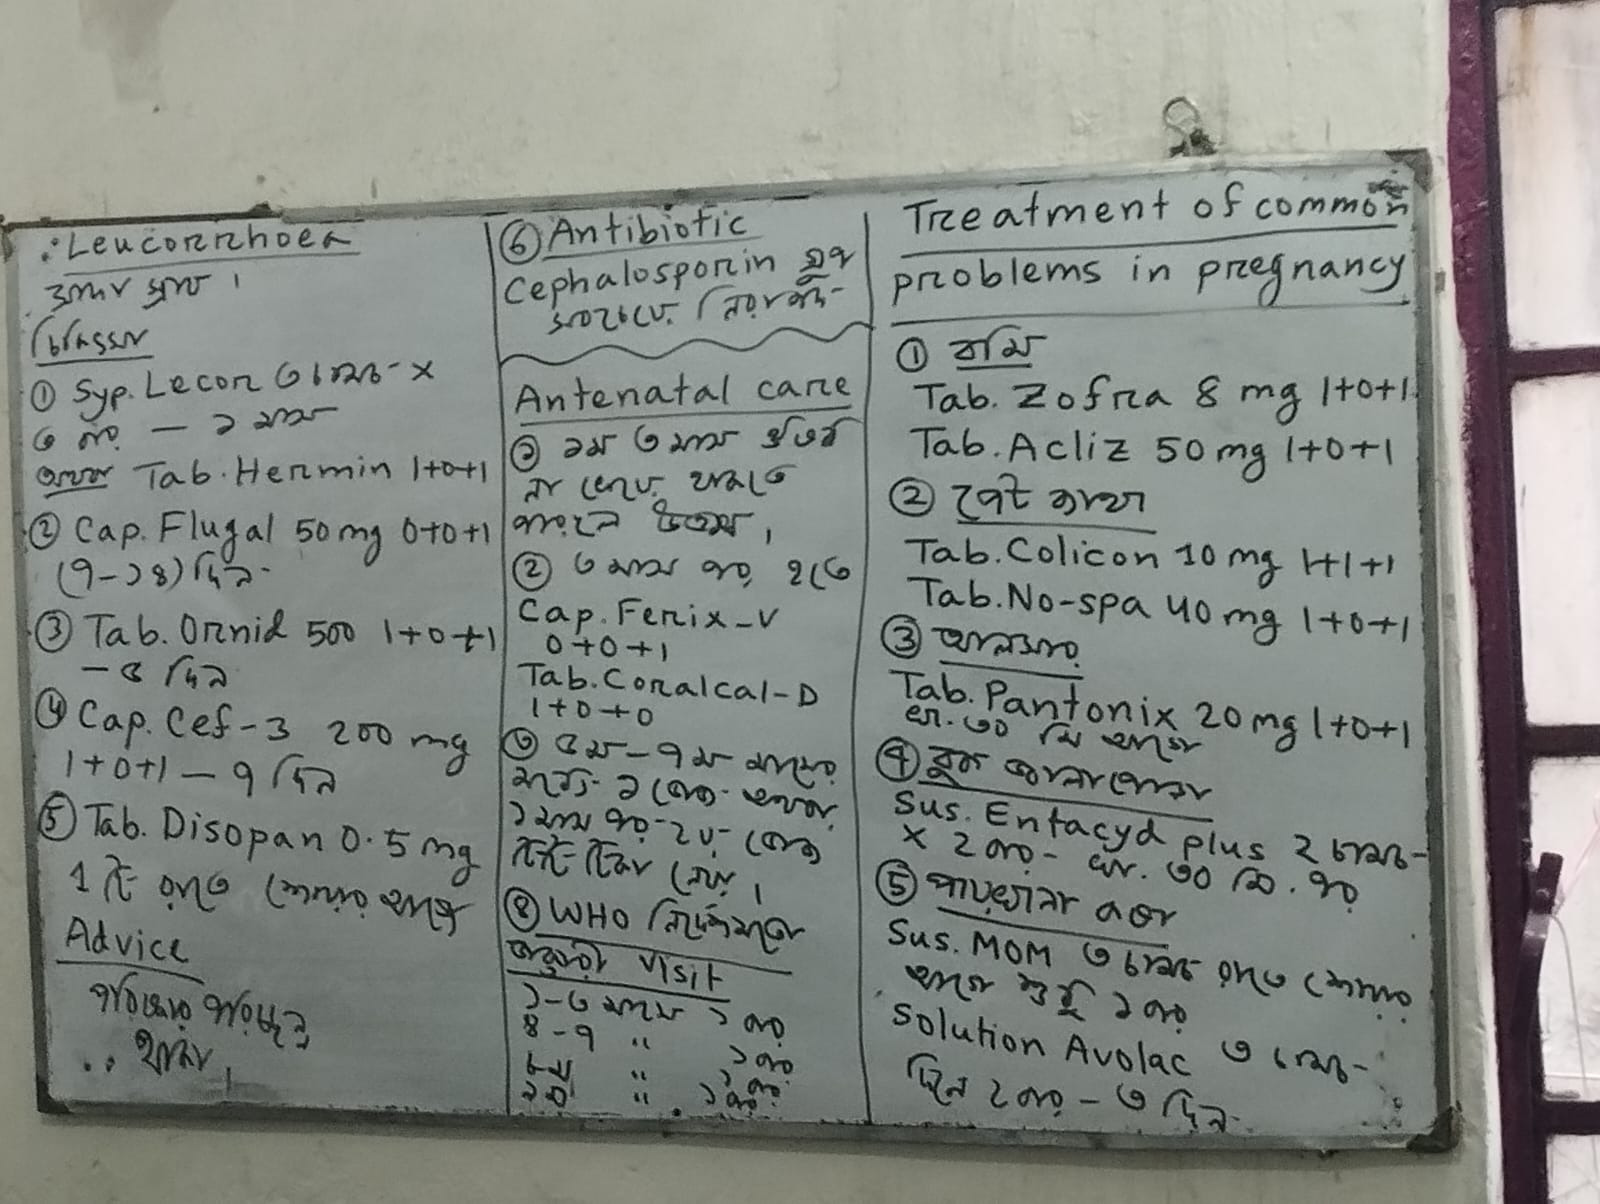 Leucorrhoea
সাদা স্রাব।
চিকিৎসা
① Syp. Lecor ৩ চামচ- x
৩ বার — ১ মাস
অথবা Tab. Hermin 1+0+1
② Cap. Flugal 50 mg 0+0+1
(৭-১৪) দিন
③ Tab. Ornid 500 1+0+1
- ৫ দিন
④ Cap. Cef-3 200 mg
1+0+1 — ৭ দিন
⑤ Tab. Disopan 0.5 mg
1 টি রাতে শোয়ার আগে
Advice
পরিষ্কার পরিচ্ছন্ন
থাকা।
⑥ Antibiotic
Cephalosporin গ্রুপ
সবচেয়ে নিরাপদ
Antenatal care
① ১ম ৩ মাস ঔষধ
না খেয়ে থাকতে
পারলে উত্তম।
② ৩ মাস পর হতে
Cap. Ferix-V
0+0+1
Tab. Coralcal-D
1+0+0
③ ৫ম-৭ম মাসের
মধ্যে ১ ডোজ আবার
১ মাস পর ২য় ডোজ
টিটি টিকা নেয়া।
④ WHO নির্দেশমতে
জরুরী visit
১-৩ মাসে ১ বার
৪-৭ " ১ বার
৮ম " ১ বার
৯ম " ১ বার
Treatment of common
problems in pregnancy
① বমি
Tab. Zofra 8 mg 1+0+1
Tab. Acliz 50 mg 1+0+1
② পেট ব্যথা
Tab. Colicon 10 mg 1+1+1
Tab. No-spa 40 mg 1+0+1
③ আলসার
Tab. Pantonix 20 mg 1+0+1
খা. ৩০ মি আগে
④ বুক জ্বালাপোড়া
Sus. Entacyd plus 2 চামচ-
x 2 বার- খা. ৩০ মি. পর
⑤ পায়খানা কষা
Sus. MOM ৩ চামচ রাতে শোয়ার
আগে শুধু ১ বার
Solution Avolac ৩ চামচ-
দিনে ২ বার - ৩ দিন